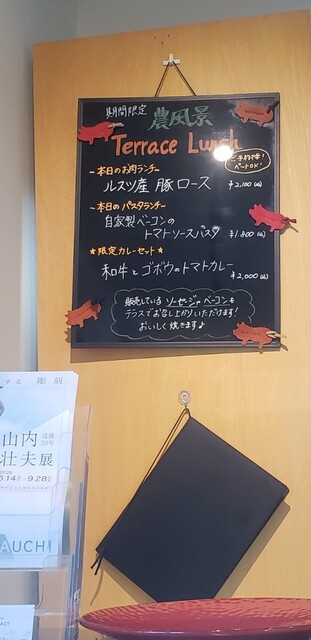 期間限定
農風景
Terrace Lunch
ご予約優先!
ペットOK!
-本日のお肉ランチ-
ルスツ産 豚ロース ¥2,100(込)
-本日のパスタランチ-
自家製ベーコンの
トマトソースパスタ ¥1,800(込)
★限定カレーセット★
和牛とゴボウのトマトカレー ¥2,000(込)
販売しているソーセージやベーコンを
テラスでお召し上がりいただけます!
おいしく焼きます♪
する 彫刻
山内
壮夫展
没後
50年
6.14 9.28
AUCHI